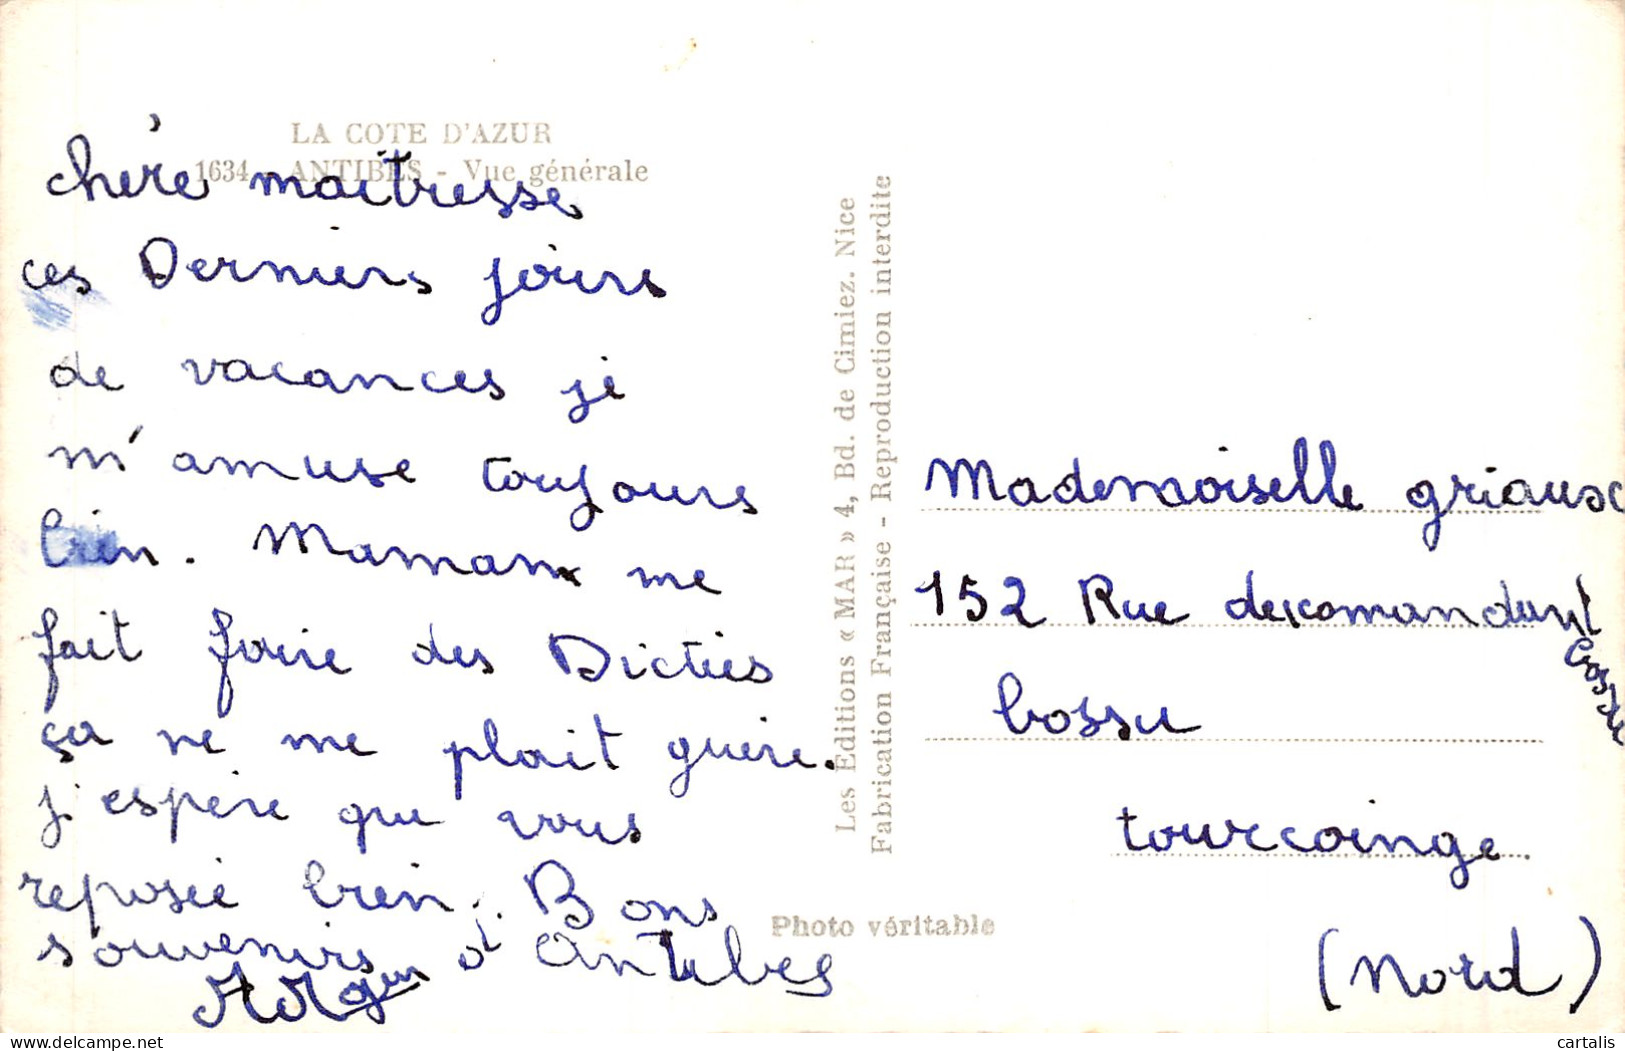 LA COTE D'AZUR
1634 - ANTIBES - Vue générale
chère maitresse
ces Derniers jours
de vacances je
m'amuse toujours
bien. Maman me
fait faire des Dictées
ça ne me plait guère.
j'espère que vous
reposée bien. Bons
souvenirs d'Antibes
Les Editions « MAR » 4, Bd. de Cimiez. Nice
Fabrication Française - Reproduction interdite
Photo véritable
Mademoiselle griaux
152 Rue descomandant
bossu
bossu
tourcoinge.
(Nord)
cartalis